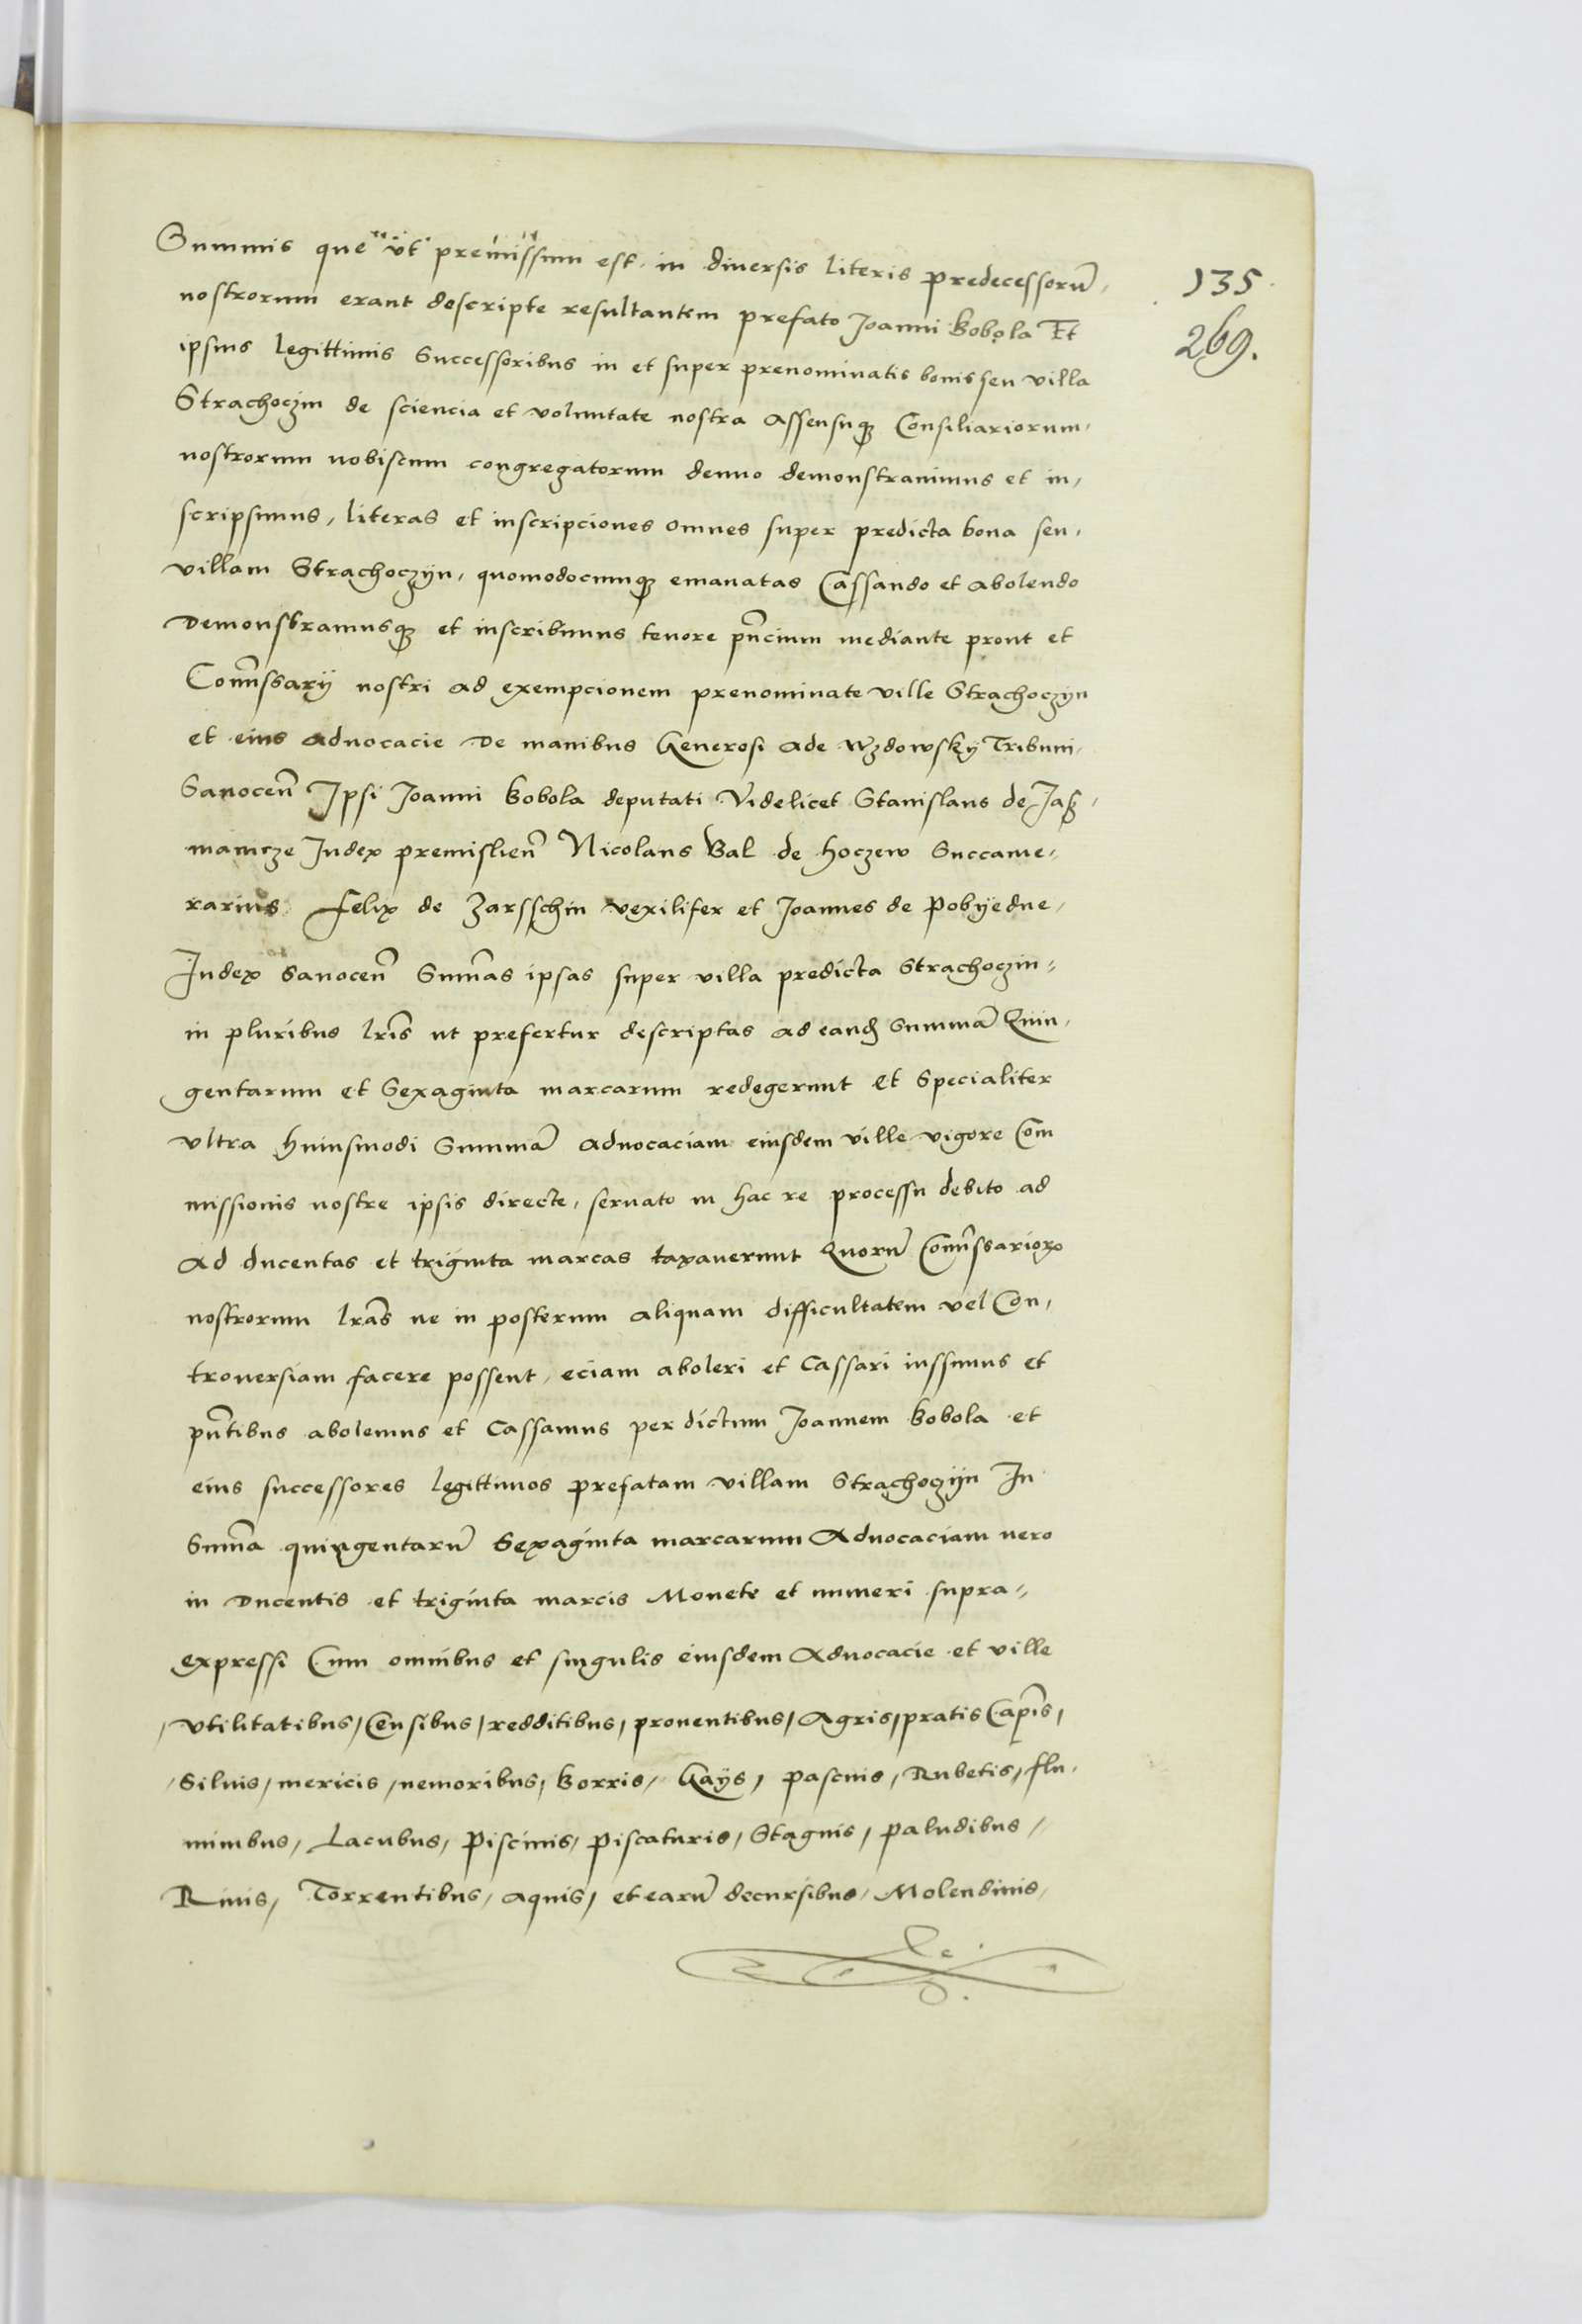 Summis que ut premissum est in diversis literis predecessorũ
135
nostrorum erant descripte resultantem prefato Joanni Bobola Et
269.
ipsius legittimis Successoribus in et super prenominatis bonis seu villa
Strachoczin de sciencia et voluntate nostra Assensuqꝫ Consiliariorum
nostrorum nobiscum congregatorum denuo demonstravimus et in,
scripsimus, literas et inscripciones omnes super predicta bona seu,
villam Strachoczyn, quomodocumqꝫ emanatas Cassando et abolendo
Demonstramusqꝫ et inscribimus tenore pñcium mediante prout et
Com̃ssarij nostri ad exempcionem prenominate ville Strachoczyn
et eius advocacie De manibus Generosi Ade Wzdowsky Tribuni
Sanoceñ Ipsi Joanni Bobola deputati Videlicet Stanislaus de Jaß,
manicze Judex premislieñ Nicolaus Bal de Hoczew Succame,
rarius Felix de Zarsschin vexilifer et Joannes de Pobyedne,
Judex Sanoceñ Sum̃as ipsas super villa predicta Strachoczin
in pluribus lr̃is ut prefertur descriptas ad eandꝫ Summã Quin,
gentarum et Sexaginta marcarum redegerunt Et Specialiter
ultra huiusmodi Summã advocaciam eiusdem ville vigore Com
missionis nostre ipsis directe, servato in hac re processu debito ad
Ad ducentas et triginta marcas taxaverunt Quorũ Com̃ssarioꝝ
nostrorum lr̃as ne in posterum aliquam difficultatem vel Con,
troversiam facere possent, eciam aboleri et Cassari iussimus et
pñtibus abolemus et Cassamus per dictum Joannem Bobola et
eius successores legittimos prefatam villam Strachoczijn In
Sum̃a quingentarũ Sexaginta marcarum Advocaciam vero
in Ducentis et triginta marcis Monete et numeri supra,
expressi Cum omnibus et singulis eiusdem Advocacie et ville
utilitatibus, Censibus, redditibus, proventibus, Agris, pratis Cãpis,
Silvis, mericis, nemoribus, borris, Gays, pascuis, Rubetis, flu,
minibus, Lacubus, piscinis, piscaturis, Stagnis, paludibus,
Rivis, Torrentibus, aquis, et earũ decursibus, Molendinis,